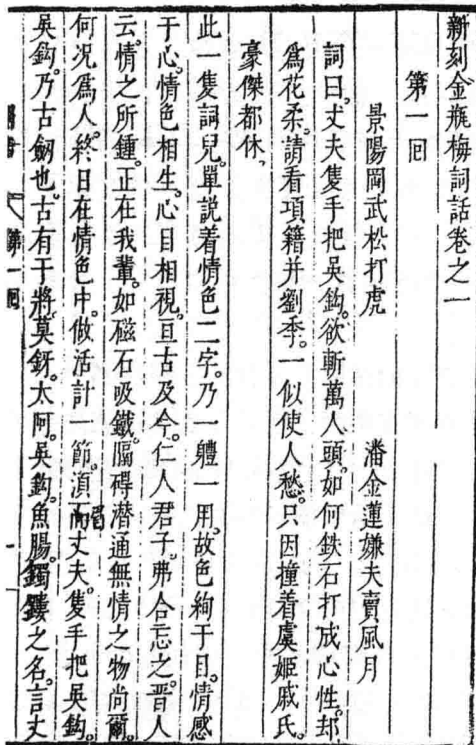 新刻金瓶梅詞話卷之一
第一回
景陽岡武松打虎　潘金蓮嫌夫賣風月
詞曰。丈夫隻手把吳鈎。欲斬萬人頭。如何鉄石打成心性。却
爲花柔。請看項籍并劉季。一似使人愁。只因撞着虞姬戚氏。
豪傑都休、
此一隻詞兒。單説着情色二字。乃一體一用。故色絢于目。情感
于心。情色相生。心目相視。亘古及今。仁人君子。弗合忘之。晋人
云。情之所鍾。正在我輩。如磁石吸鐵。隔碍潜通。無情之物尚爾。
何况爲人。終日在情色中。做活計一節。須而丈夫。隻手把吳鈎。
吳鈎。乃古劔也。古有干將。莫釾。太阿。吳鈎。魚腸。鐲鏤之名。言丈
第一回